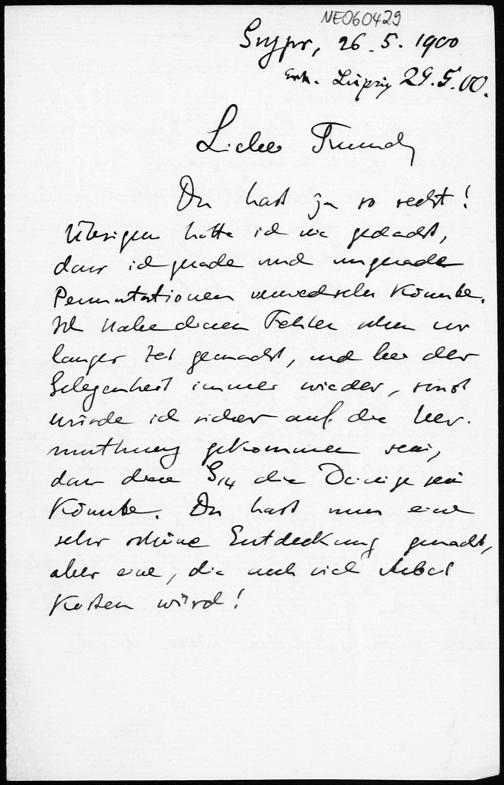 NE060429
26. 5. 1900
Erh. Leipzig 29. 5. 00.
Lieber Freund,
Du hast ja so recht!
Übrigens hätte ich nie gedacht,
dass ich gerade und ungerade
Permutationen verwechseln könnte.
Ich habe diesen Fehler schon vor
langer Zeit gemacht, und bei der
Gelegenheit immer wieder, sonst
würde ich sicher auf die Ver-
muthung gekommen sein,
dass diese G14 die Deinige sein
könnte. Du hast nun eine
sehr schöne Entdeckung gemacht,
aber eine, die noch viel Arbeit
kosten wird!